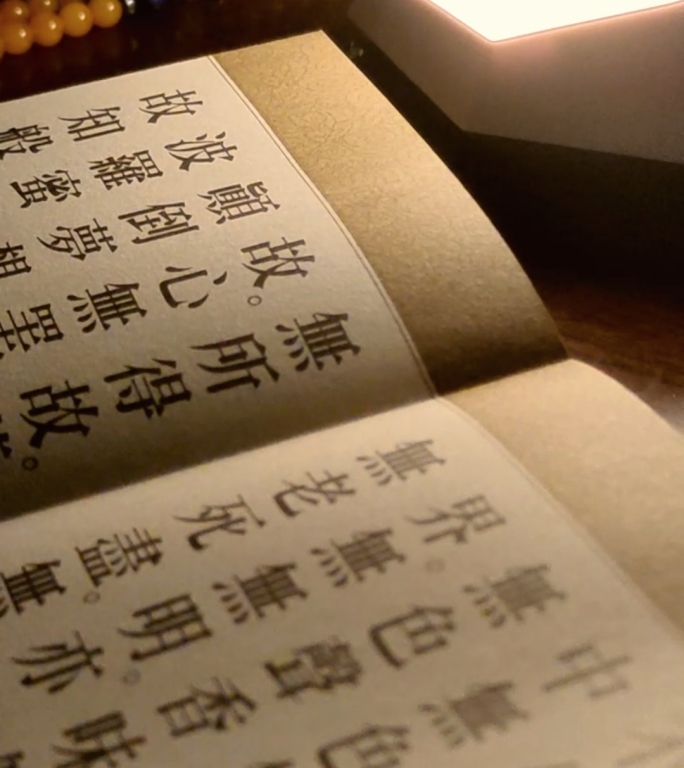 中無色
無色聲香味
界。無無明。亦
無老死盡。無
無所得故。
故。心無罣
顛倒夢想
波羅蜜
故知般